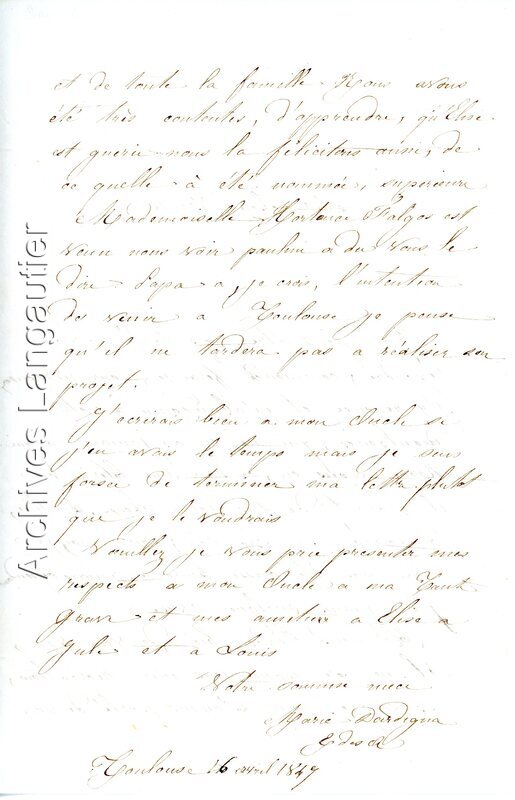 et de toute la famille. Nous avons
été très contentes, d'apprendre, qu'Elise
est guerie nous la félicitons aussi, de
ce quelle à été nommée, supérieure
Mademoiselle Hortence Falgos est
venu nous voir pauline a du vous le
dire Papa a, je crois, l'intention
de venir a Toulouse je pense
qu'il ne tardera pas a réaliser son
projet.
J'écrirais bien a mon Oncle si
j'en avais le temps mais je suis
forsée de terminer ma lettre plutot
que je le voudrais
Veuillez je vous prie presenter mes
respects a mon Oncle a ma Tante
Grave et mes amitiés a Elise a
Jule et a Louis
Votre soumise niece
Marie Dardigna
Toulouse 16 avril 1849
Archives Langautier